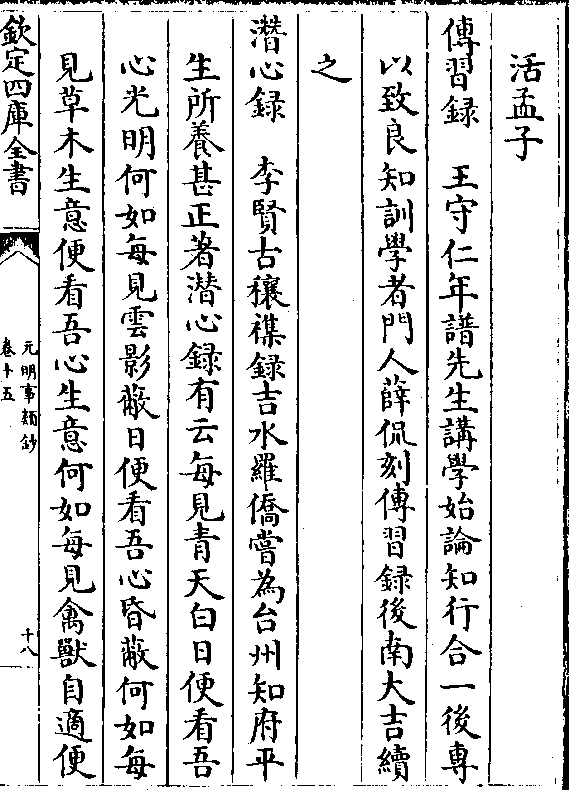 活孟子
傳習録　王守仁年譜先生講學始論知行合一後專
以致良知訓學者門人薛侃刻傳習録後南大吉續
之
潛心録　李賢古穰襍録吉水羅僑嘗為台州知府平
生所養甚正著潛心録有云每見青天白日便看吾
心光明何如每見雲影蔽日便看吾心昏蔽何如每
見草木生意便看吾心生意何如每見禽獸自適便
欽定四庫全書
元明事類鈔
卷十五
十八